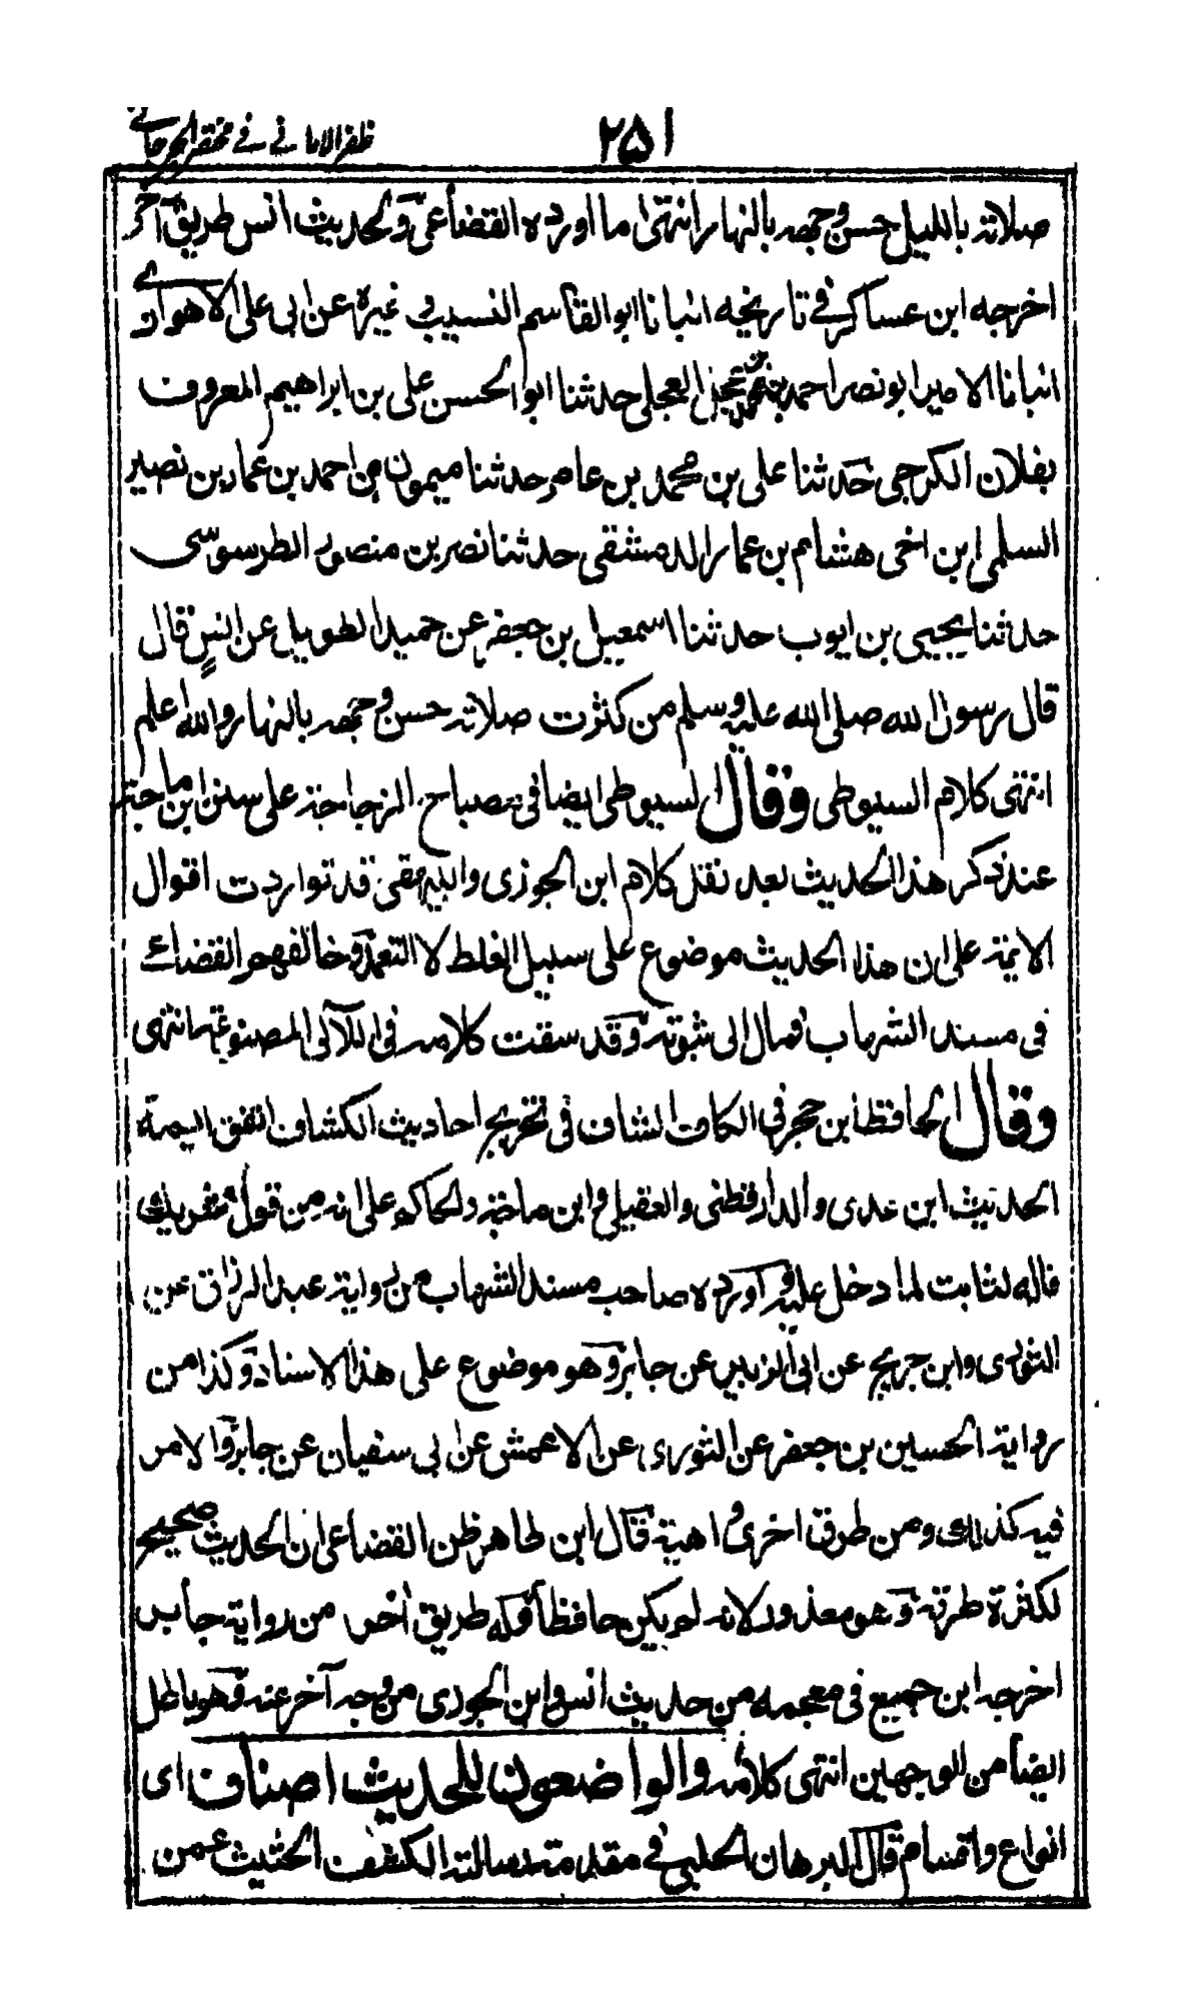 ٢٥١
ظفر الاماني في مختصر الجرجاني
صلاته بالليل حسن وجهه بالنهار انتهى ما اورده القضاعي ولحديث انس طريق آخر
اخرجه ابن عساكر في تاريخه انبانا ابو القاسم النسيب وغيره عن ابى على الاهوازے
انبانا الامير ابو نصر احمد بن محمد بن عجل العجلى حدثنا ابو الحسن على بن ابراهيم المعروف
بفلان الكرجى حدثنا على بن محمد بن عامر حدثنا ميمون بن احمد بن عمار بن نصير
السلمى ابن اخى هشام بن عمار الدمشقى حدثنا نصر بن منصور الطرسوسى
حدثنا يحيى بن ايوب حدثنا اسمعيل بن جعفر عن حميد الطويل عن انس قال
قال رسول الله صلى الله عليه وسلم من كثرت صلاته حسن وجهه بالنهار والله اعلم
انتهى كلام السيوطى وقال السيوطى ايضا فى مصباح الزجاجة على سنن ابن ماجة
عند ذكر هذا الحديث بعد نقل كلام ابن الجوزى والبيهقى قد تواردت اقوال
الايمة على ان هذا الحديث موضوع على سبيل الغلط لا التعمد وخالفهم القضاعے
فى مسند الشهاب فمال الى ثبوته وقد سقت كلامه فى اللآلى المصنوعة انتهى
وقال الحافظ ابن حجر فى الكاف الشاف فى تخريج احاديث الكشاف اتفق ايمة
الحديث ابن عدى والدارقطنى والعقيلى وابن ماجة والحاكم على انه من قول شريك
قاله لثابت لما دخل عليه واورده صاحب مسند الشهاب من رواية عبد الرزاق عن
الثورى وابن جريج عن ابى الزبير عن جابر وهو موضوع على هذا الاسناد وكذا من
رواية الحسين بن جعفر عن الثورى عن الاعمش عن ابى سفيان عن جابر والامر
فيه كذلك ومن طرق اخرى واهية قال ابن طاهر ظن القضاعى ان الحديث صحيح
لكثرة طرقه وهو معذور لانه لم يكن حافظا وله طريق اخرى من رواية جابر
اخرجه ابن جميع فى معجمه من حديث انس وابن الجوزى من وجه آخر عنه وهو باطل
ايضا من الوجهين انتهى كلامه والواضعون للحديث اصناف اى
انواع واقسام قال البرهان الحلبى فى مقدمة رسالته الكشف الحثيث عمن